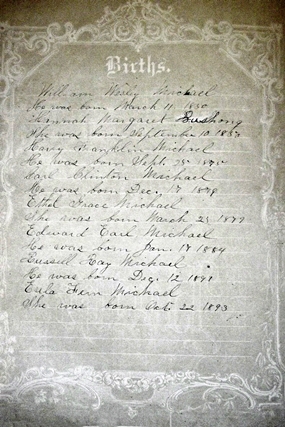 Births.
William Wesly Michael
He was born March 11 1850
Hannah Margaret Bushong
She was born September 10 1857
Harry Franklin Michael
He was born Sept. 25
Clinton Michael
He was born Dec. 17
Ethel Grace Michael
She was born March 23
Edward Earl Michael
He was born Jan. 17 1884
Russell Ray Michael
He was born Dec. 12 1891
Eula Fern Michael
She was born Oct. 22 1893